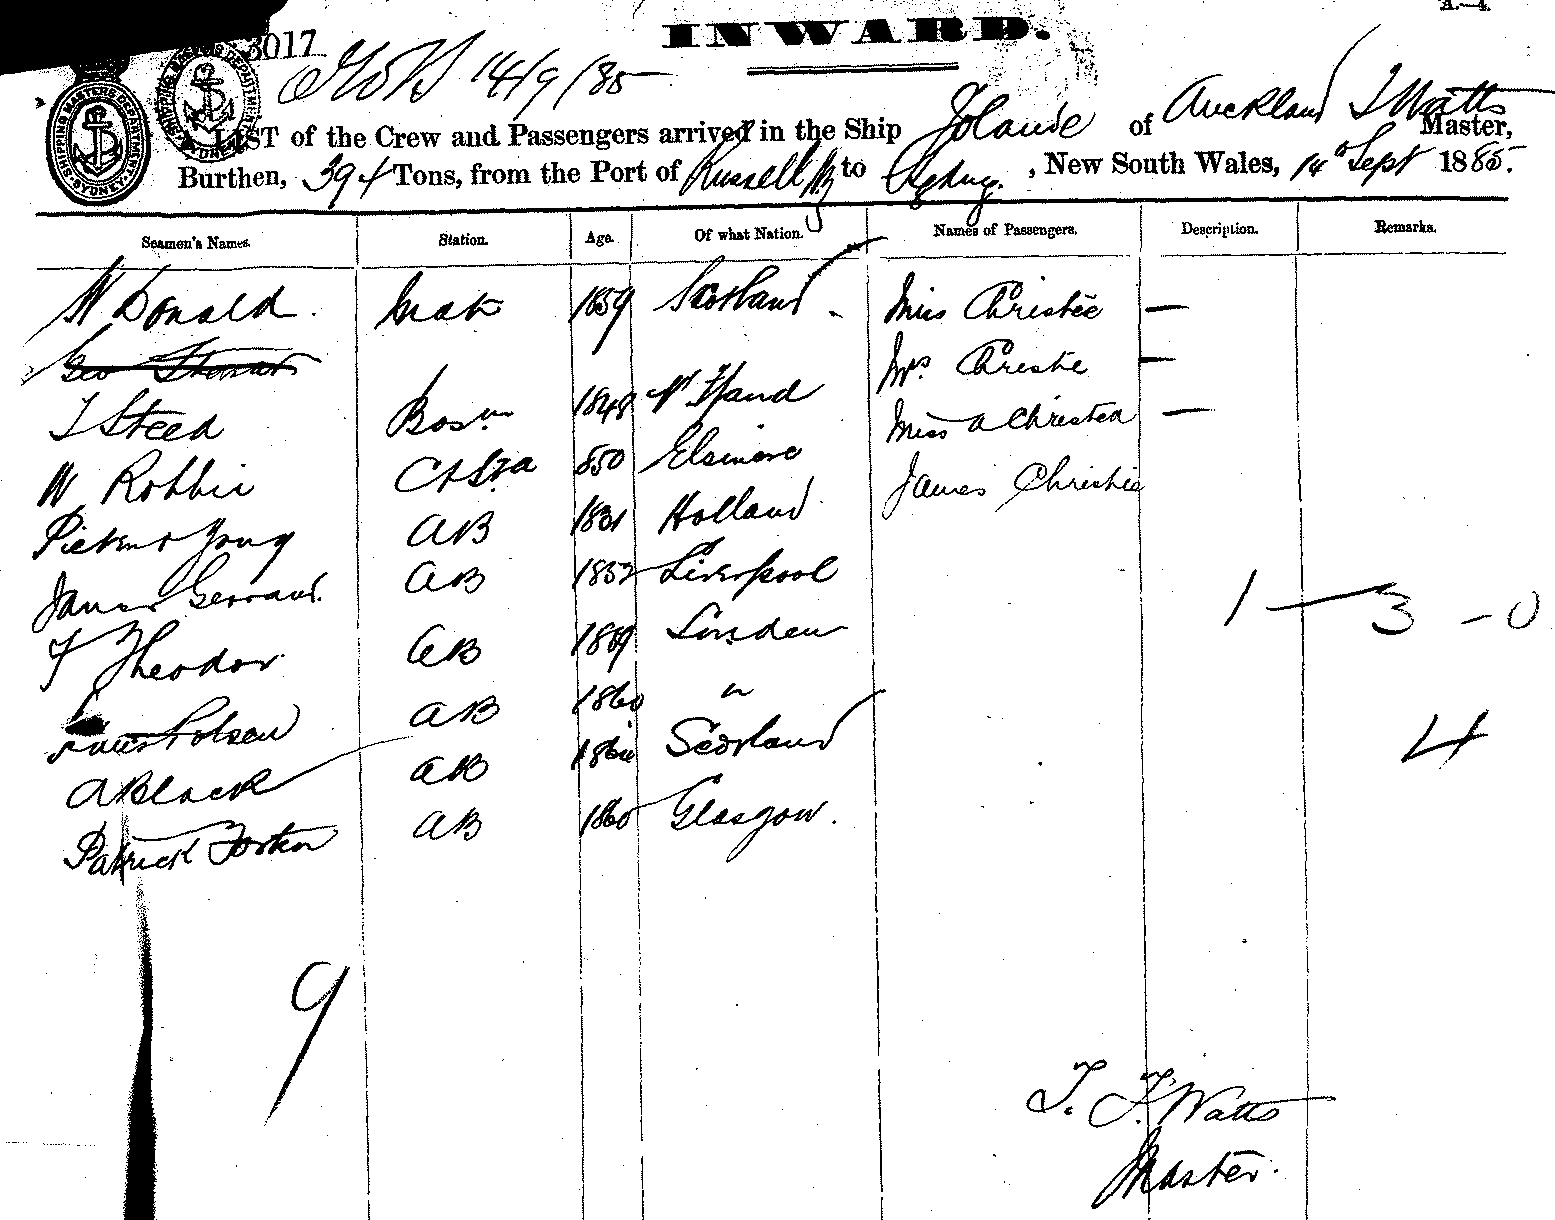 A.—4.
3017
INWARD.
14/9/85
SHIPPING MASTERS DEPARTMENT SYDNEY
LIST of the Crew and Passengers arrived in the Ship Jolande of Auckland T Watts Master,
Burthen, 394 Tons, from the Port of Russell to Sydney, New South Wales, 14th Sept 1885.
Seamen's Names. Station. Age. Of what Nation. Names of Passengers. Description. Remarks.
W Donald Mate 1859 Scotland Miss Christie —
Geo Mrs. Christie —
T Steed Bosn 1848 Miss A Christea —
W Robbie 1850 Elsinore James Christie
Young AB 1831 Holland
James Gerraud AB 1852 Liverpool
1 — 3 - 0
T Theodor AB 1859
Polsen AB 1860 "
4
A Black AB Scotland
Patrick AB 1860 Glasgow.
9
T. F. Watts
Master.